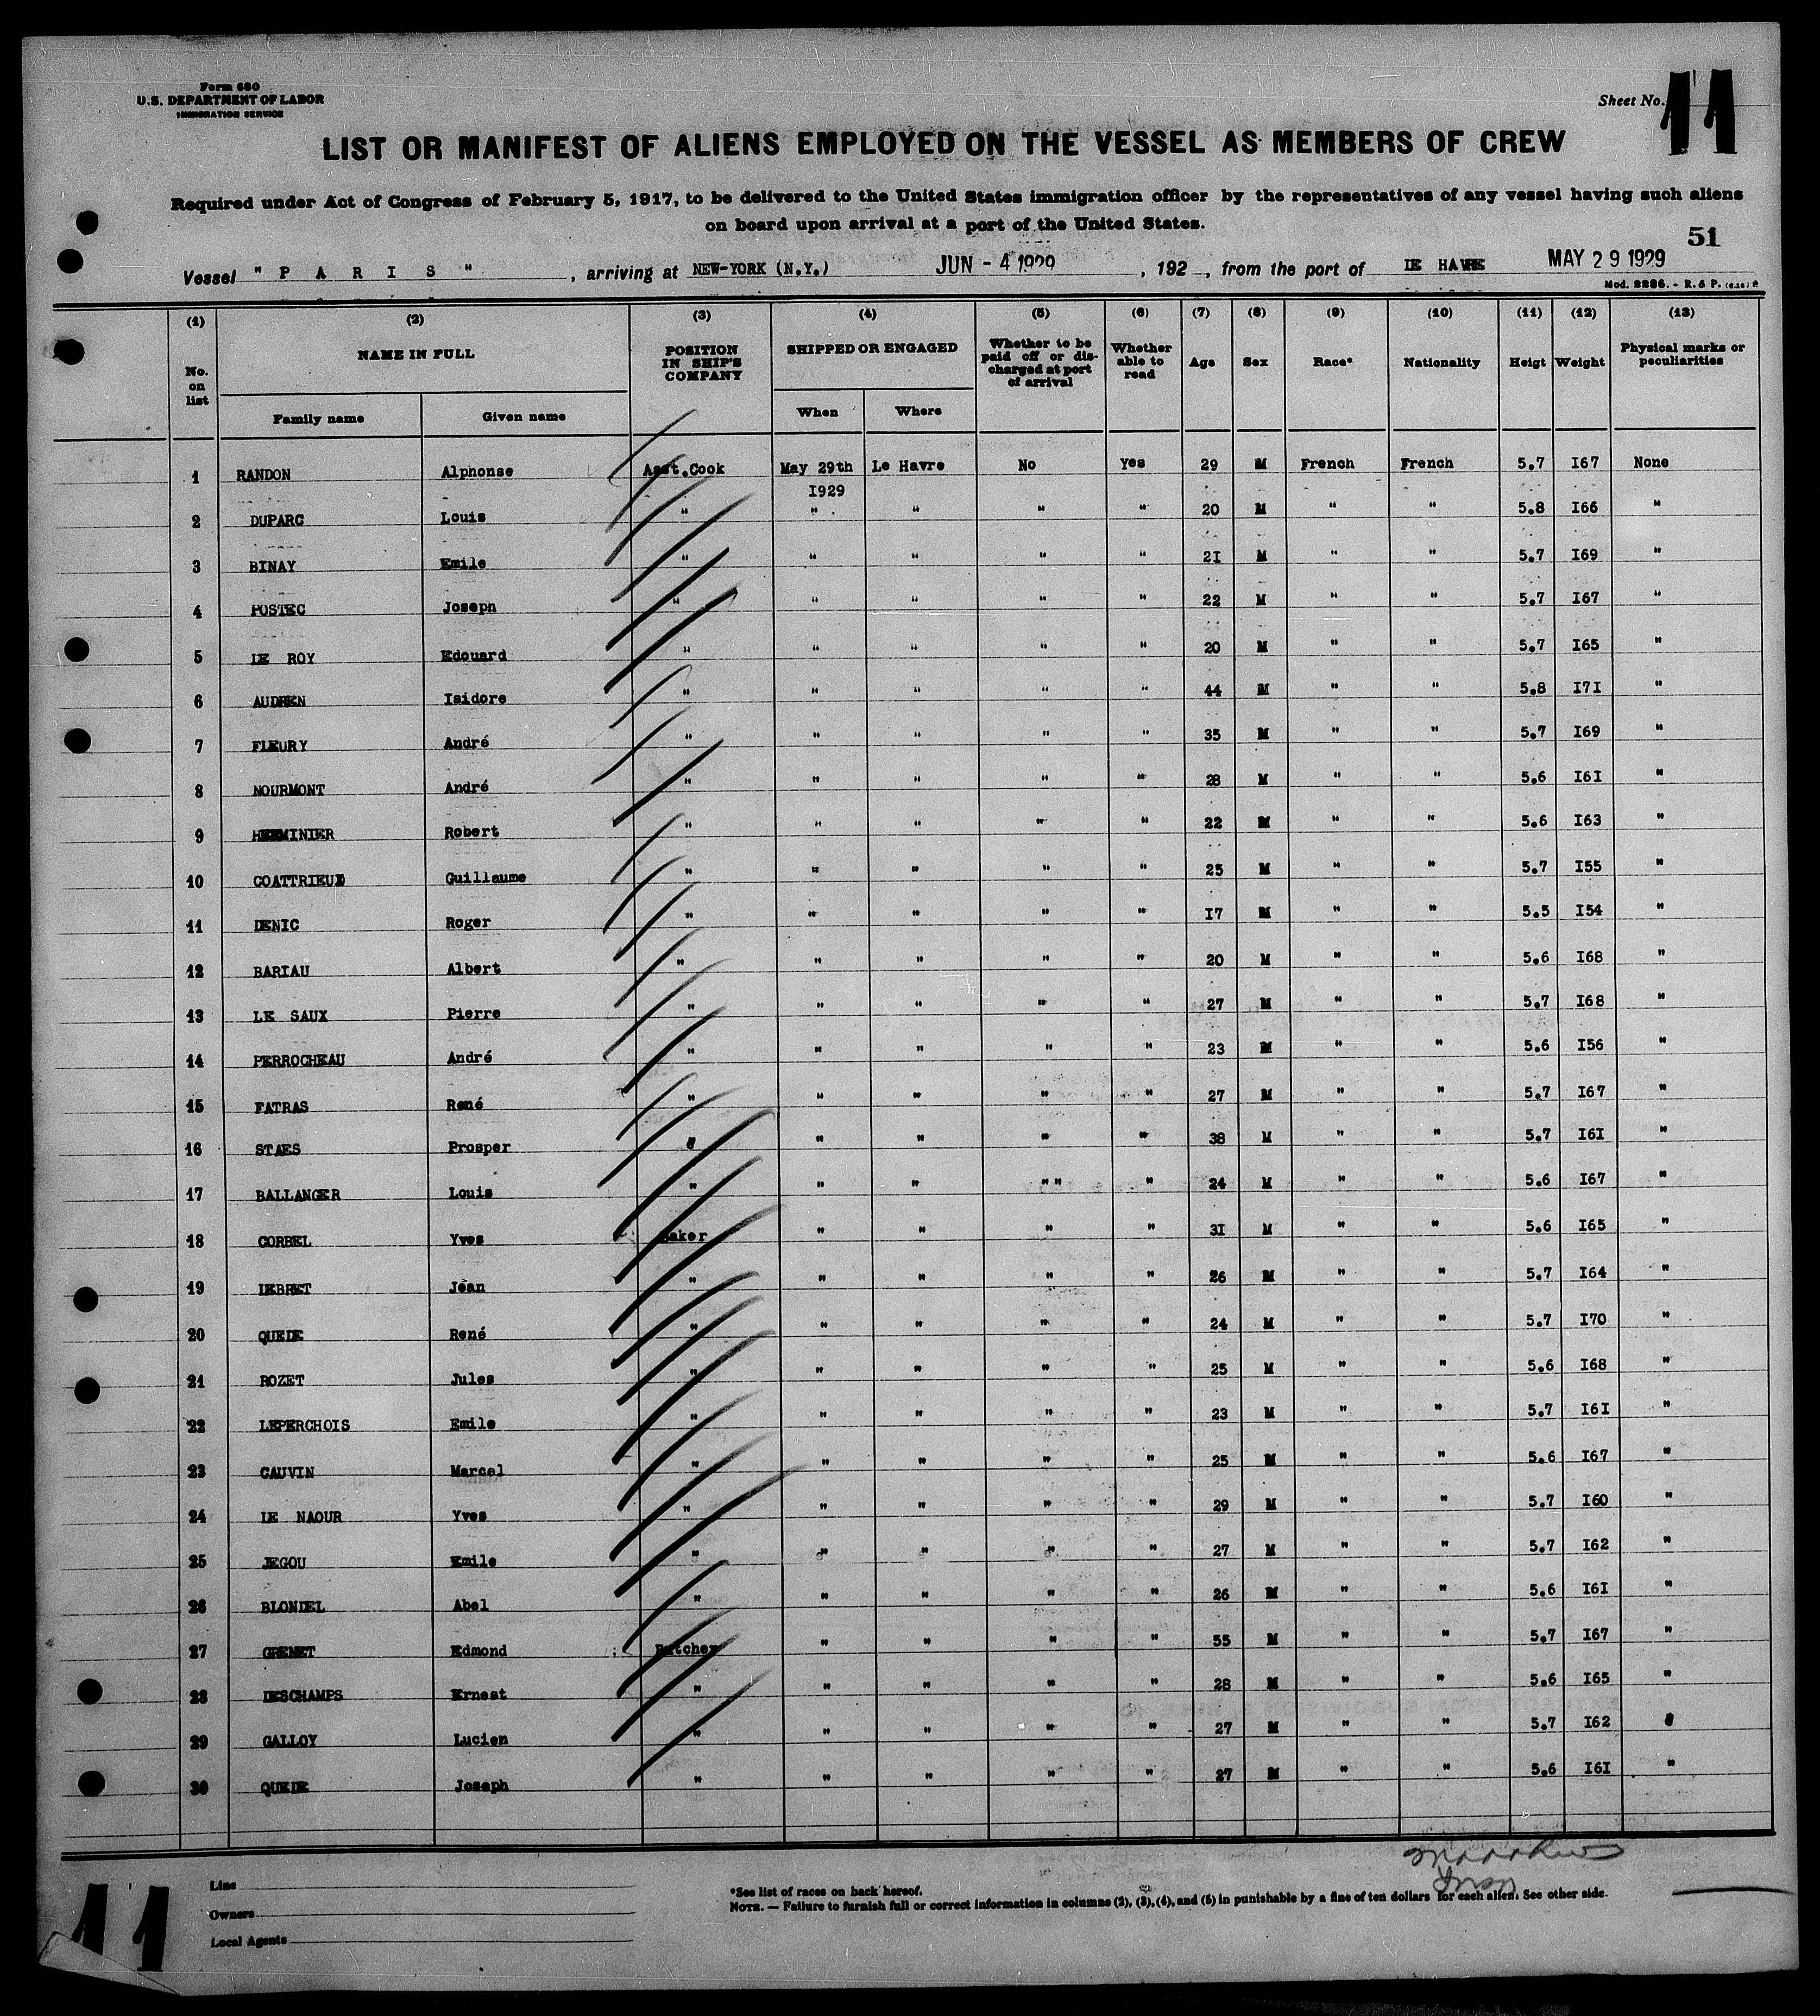 Form 680
U.S. DEPARTMENT OF LABOR
IMMIGRATION SERVICE
Sheet No. 11
LIST OR MANIFEST OF ALIENS EMPLOYED ON THE VESSEL AS MEMBERS OF CREW
Required under Act of Congress of February 5, 1917, to be delivered to the United States immigration officer by the representatives of any vessel having such aliens
on board upon arrival at a port of the United States.
51
Vessel " P A R I S " , arriving at NEW-YORK (N.Y.) JUN - 4 1929 , 192 , from the port of LE HAVRE MAY 29 1929
Mod. 2286. - R. & P.
(1) (2) (3) (4) (5) (6) (7) (8) (9) (10) (11) (12) (13)
No. on list NAME IN FULL POSITION IN SHIP'S COMPANY SHIPPED OR ENGAGED Whether to be paid off or discharged at port of arrival Whether able to read Age Sex Race* Nationality Heigt Weight Physical marks or peculiarities
Family name Given name When Where
1 RANDON Alphonse Asst.Cook May 29th Le Havre No Yes 29 M French French 5.7 I67 None
I929
2 DUPARC Louis " " " " " 20 M " " 5.8 I66 "
3 BINAY Emile " " " " " 2I M " " 5.7 I69 "
4 POSTEC Joseph " " " " " 22 M " " 5.7 I67 "
5 LE ROY Edouard " " " " " 20 M " " 5.7 I65 "
6 AUDREN Isidore " " " " " 44 M " " 5.8 I7I "
7 FLEURY André " " " " " 35 M " " 5.7 I69 "
8 NOURMONT André " " " " " 28 M " " 5.6 I6I "
9 HERMINIER Robert " " " " " 22 M " " 5.6 I63 "
10 COATTRIEUD Guillaume " " " " " 25 M " " 5.7 I55 "
11 DENIC Roger " " " " " I7 M " " 5.5 I54 "
12 BARIAU Albert " " " " " 20 M " " 5.6 I68 "
13 LE SAUX Pierre " " " " " 27 M " " 5.7 I68 "
14 PERROCHEAU André " " " " " 23 M " " 5.6 I56 "
15 FATRAS René " " " " " 27 M " " 5.7 I67 "
16 STAES Prosper " " " " " 38 M " " 5.7 I6I "
17 BALLANGER Louis " " " " " " 24 M " " 5.6 I67 "
18 CORBEL Yves Baker " " " " 3I M " " 5.6 I65 "
19 LEBRET Jean " " " " " 26 M " " 5.7 I64 "
20 QUELE René " " " " " 24 M " " 5.7 I70 "
21 ROZET Jules " " " " " 25 M " " 5.6 I68 "
22 LEPERCHOIS Emile " " " " " 23 M " " 5.7 I6I "
23 CAUVIN Marcel " " " " " 25 M " " 5.6 I67 "
24 LE NAOUR Yves " " " " " 29 M " " 5.7 I60 "
25 JEGOU Emile " " " " " 27 M " " 5.7 I62 "
26 BLONDEL Abel " " " " " 26 M " " 5.6 I6I "
27 GRENET Edmond Butcher " " " " 55 M " " 5.7 I67 "
28 DESCHAMPS Ernest " " " " " 28 M " " 5.6 I65 "
29 GALLOY Lucien " " " " " 27 M " " 5.7 I62
30 QUELE Joseph " " " " " 27 M " " 5.6 I6I "
Line
Owners
Local Agents
*See list of races on back hereof.
NOTE. — Failure to furnish full or correct information in columns (2), (3), (4), and (5) in punishable by a fine of ten dollars for each alien. See other side.
11